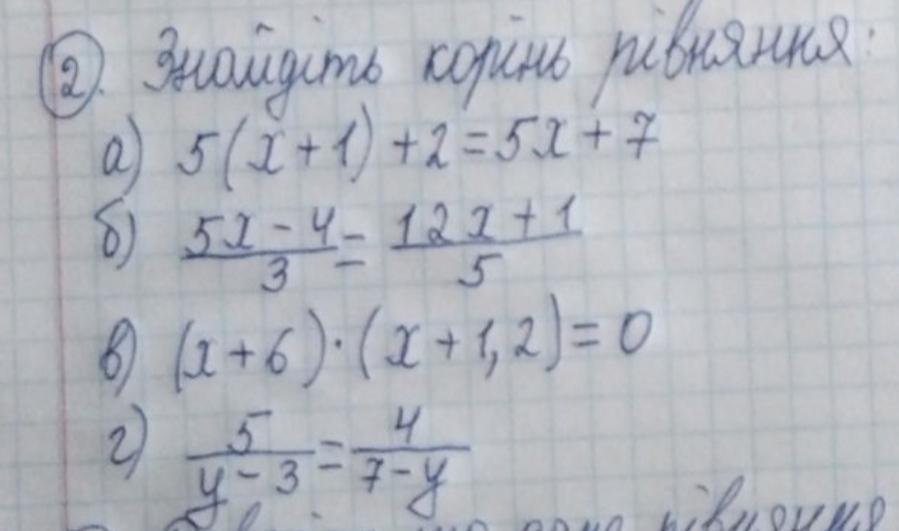 2. Знайдіть корінь рівняння:
а) 5(x+1)+2=5x+7
б) \frac{5x-4}{3} = \frac{12x+1}{5}
в) (x+6)·(x+1,2)=0
г) \frac{5}{y-3} = \frac{4}{7-y}
рівняння